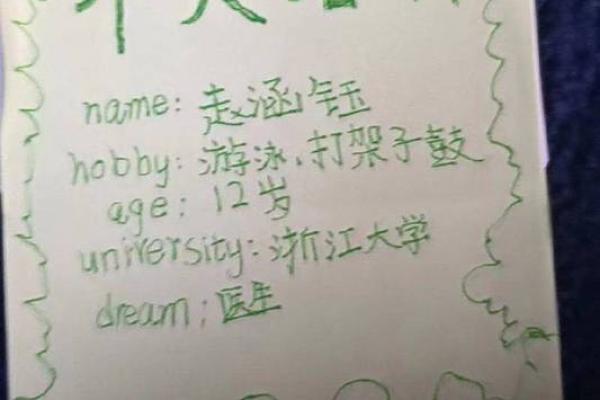 name: 赵涵钰
hobby: 游泳、打架子鼓
age: 12岁
university: 浙江大学
dream: 医生